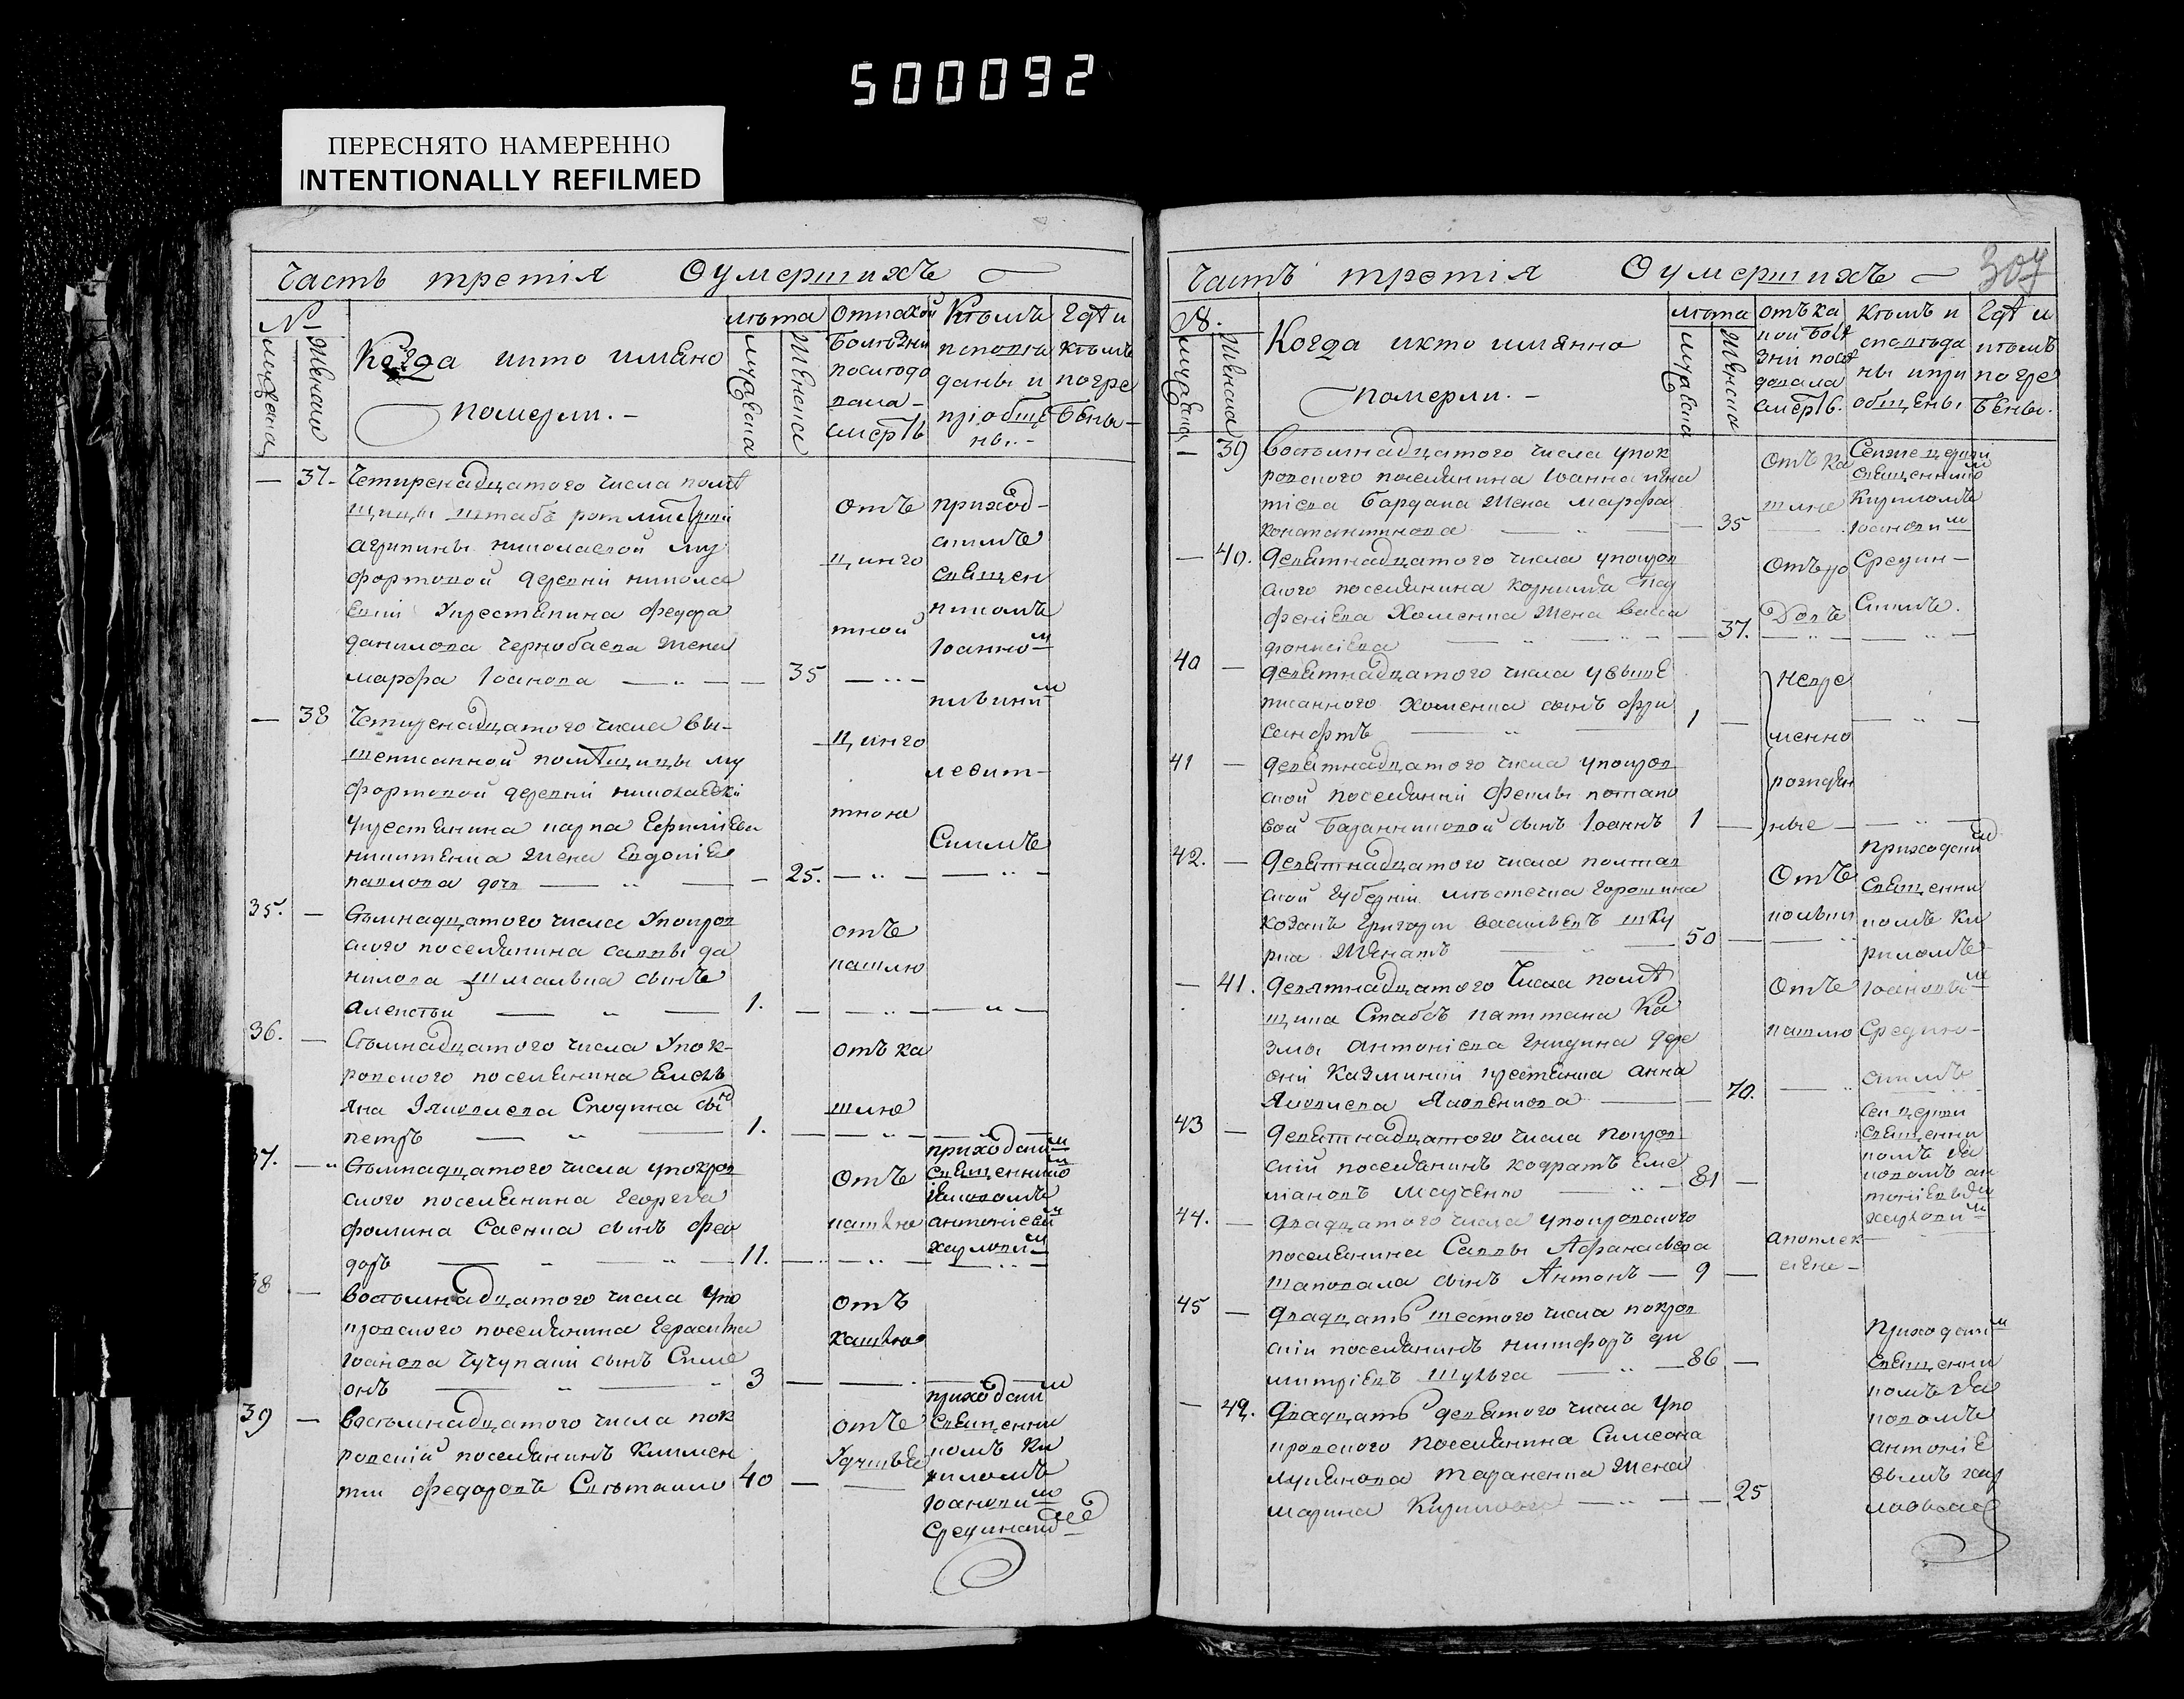 500092
ПЕРЕСНЯТО НАМЕРЕННО
INTENTIONALLY REFILMED
Часть третія О умершихъ
№
мужеска
женска
Когда и кто имено
померли. -
лѣта
мужеска
женска
От какой
болѣзни
послѣдо
вала
смерть
Кѣмъ
исповѣ
даны и
пріобще
ны. -
Гдѣ и
кѣмъ
погре
бены -
— 37. Четиренадцатого числа помѣ
щицы штабъ ротмистрши
агрипины николаевой му
фортовой деревни никола
евки Укрестянина федора
данилова чернобаева жена
марфа Іоанова — 35
отъ
цинго
тной
приход-
скимъ
священ
никомъ
Іоанно м
— 38 Четиренадцатого числа вы-
шеписанной помѣщицы му
фортовой деревни николаевки
Укрестянина карпа
никитенка жена евдокіе
павлова доч — 25.
цинго
тною
левит-
скимъ
35. — Семнадцатого числа Упокров
ского поселянина саввы да
нилова шмалька сынъ
алексѣй — 1.
отъ
кашлю
36. — Семнадцатого числа Упок-
ровского поселянина Емель
яна Яковлева сын
петръ — 1.
отъ ка
шлю
37. — Семнадцатого числа упокров
ского поселянина Георгія
фомина Саенка сынъ фео
доръ — 11.
отъ
кашлю
приходским
священнико
Іяковомъ
антоніеви м
харлови м
38 — Восемнадцатого числа Упо
кровского поселянина Герасима
Іоанова сынъ Симе
онъ — 3
отъ
кашлю
39 — Восемнадцатого числа пок
ровскій поселянинъ Климен
тій федоровъ 40 —
отъ
приходским
Священни
комъ Ки
риломъ
Іоанови м
Срединским
Часть третія О умершихъ
307
№.
мужеска
женска
Когда и кто имянно
померли. -
лѣта
мужеска
женска
отъ ка
кой болѣ
зни послѣ
довала
смерть.
кѣмъ и
сповѣда
ны и при
общены
Гдѣ и
кѣмъ
погре
бены.
— 39 Восемнадцатого числа упок
ровского поселянина Іоанна
Бардака жена марфа
константинова — 35
отъ ка
шлю
священнико
Кириломъ
Іоанови м
— 40. Девятнадцатого числа упокров
ского поселянина корнилія пар
феніева Хоменка жена васса
37.
отъ ро
довъ
Средин-
скимъ.
40 — Девятнадцатого числа увыше
писанного хоменка сынъ
1 —
несре
менно
рожден
ные
41 — Девятнадцатого числа упокров
ской поселянки феклы потапо
вой Баранниковой сынъ Іоаннъ 1 —
42. — Девятнадцатого числа полтав
ской губерніи мѣстечка Горошина
козакъ Григорій васильевъ шку
рка женатъ 50 —
отъ
приходским
священни
комъ Ки
риломъ
Іоанови м
— 41. Девятнадцатого числа помѣ
щика Стабсъ капитана Ко
змы антоніева дере
вни Казминки крестянка анна
Яковлева Яковенкова — 70.
отъ
кашлю
Средин-
скимъ
43 — Девятнадцатого числа покров
скій поселянинъ кодратъ Еме
ліановъ — 81 —
священни
комъ Ія
ковомъ ан
тоніевым
харлови м
44. — Двадцатого числа упокровского
поселянина Саввы Афанасіева
шаповала сынъ Антонъ — 9 —
апоплек
сіею —
45 — Двадцать шестого числа покров
скій поселянинъ никифоръ ди
митріевъ Шульга — 86 —
Приходским
священни
комъ Іа
ковомъ
антоніе
вымъ хар
— 42. Двадцать девятого числа Упо
кровского поселянина Симеона
лукянова Тараненка жена
марина Кирилова — 25